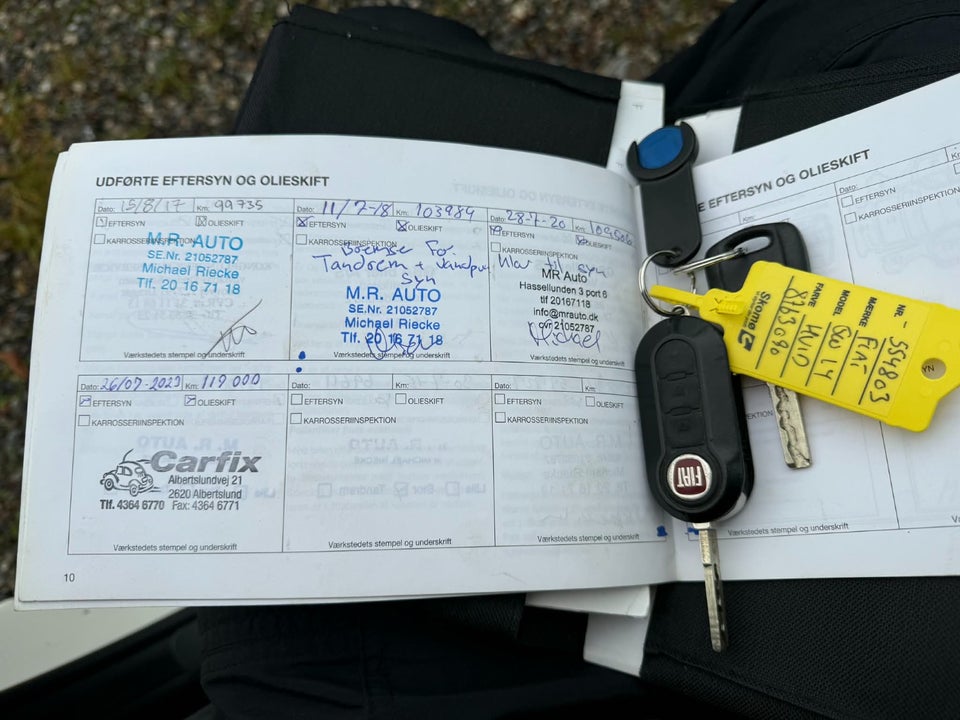 UDFØRTE EFTERSYN OG OLIESKIFT
Dato: 15/8/17 Km: 99735
EFTERSYN OLIESKIFT
KARROSSERIINSPEKTION
M.R. AUTO
SE.Nr. 21052787
Michael Riecke
Tlf. 20 16 71 18
Værkstedets stempel og underskrift
Dato: 11/7-18 Km: 103984
EFTERSYN OLIESKIFT
KARROSSERIINSPEKTION
Bremse For.
Tandrem + vandpum
Syn
M.R. AUTO
SE.Nr. 21052787
Michael Riecke
Tlf. 20 16 71 18
Værkstedets stempel og underskrift
Dato: 28-7-20 Km: 109506
EFTERSYN OLIESKIFT
KARROSSERIINSPEKTION
Klar til syn
MR Auto
Hassellunden 3 port 6
tlf 20167118
info@mrauto.dk
cvr 21052787
Michael
Værkstedets stempel og underskrift
Dato: 26/07-2023 Km: 119 000
EFTERSYN OLIESKIFT
KARROSSERIINSPEKTION
Carfix
Albertslundvej 21
2620 Albertslund
Tlf. 4364 6770 Fax: 4364 6771
Værkstedets stempel og underskrift
Dato: Km:
EFTERSYN OLIESKIFT
KARROSSERIINSPEKTION
Værkstedets stempel og underskrift
Dato: Km:
EFTERSYN OLIESKIFT
KARROSSERIINSPEKTION
Værkstedets stempel og underskrift
10
E EFTERSYN OG OLIESKIFT
Dato: Km:
EFTERSYN
KARROSSERIINSPEKTION
Dato: Km
EFTERSYN
KARROSSERIINSP
NR. 554803
MÆRKE FIAT
MODEL 500 1.4
FARVE HVID
Skome
FIAT